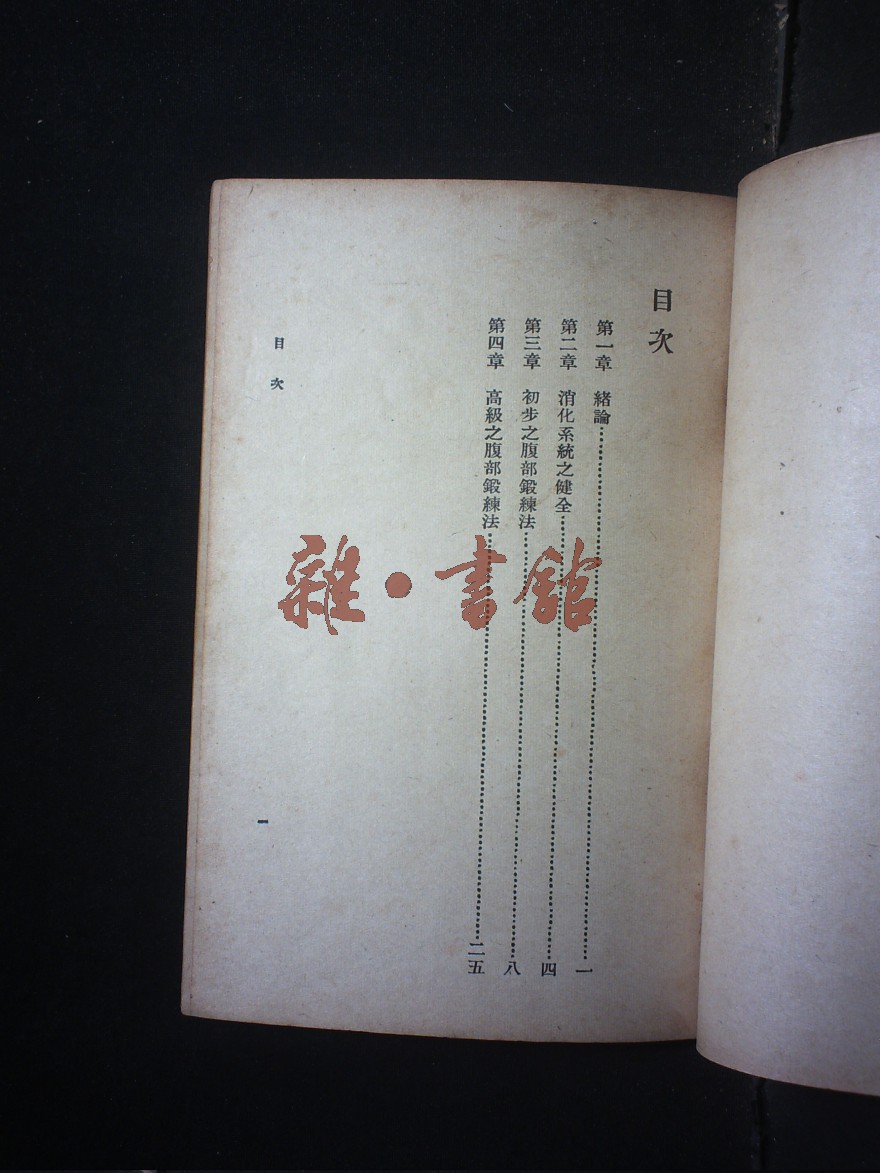 目次
第一章 緒論…………一
第二章 消化系統之健全…………四
第三章 初步之腹部鍛練法…………八
第四章 高級之腹部鍛練法…………二五
目次
一
雜·書館